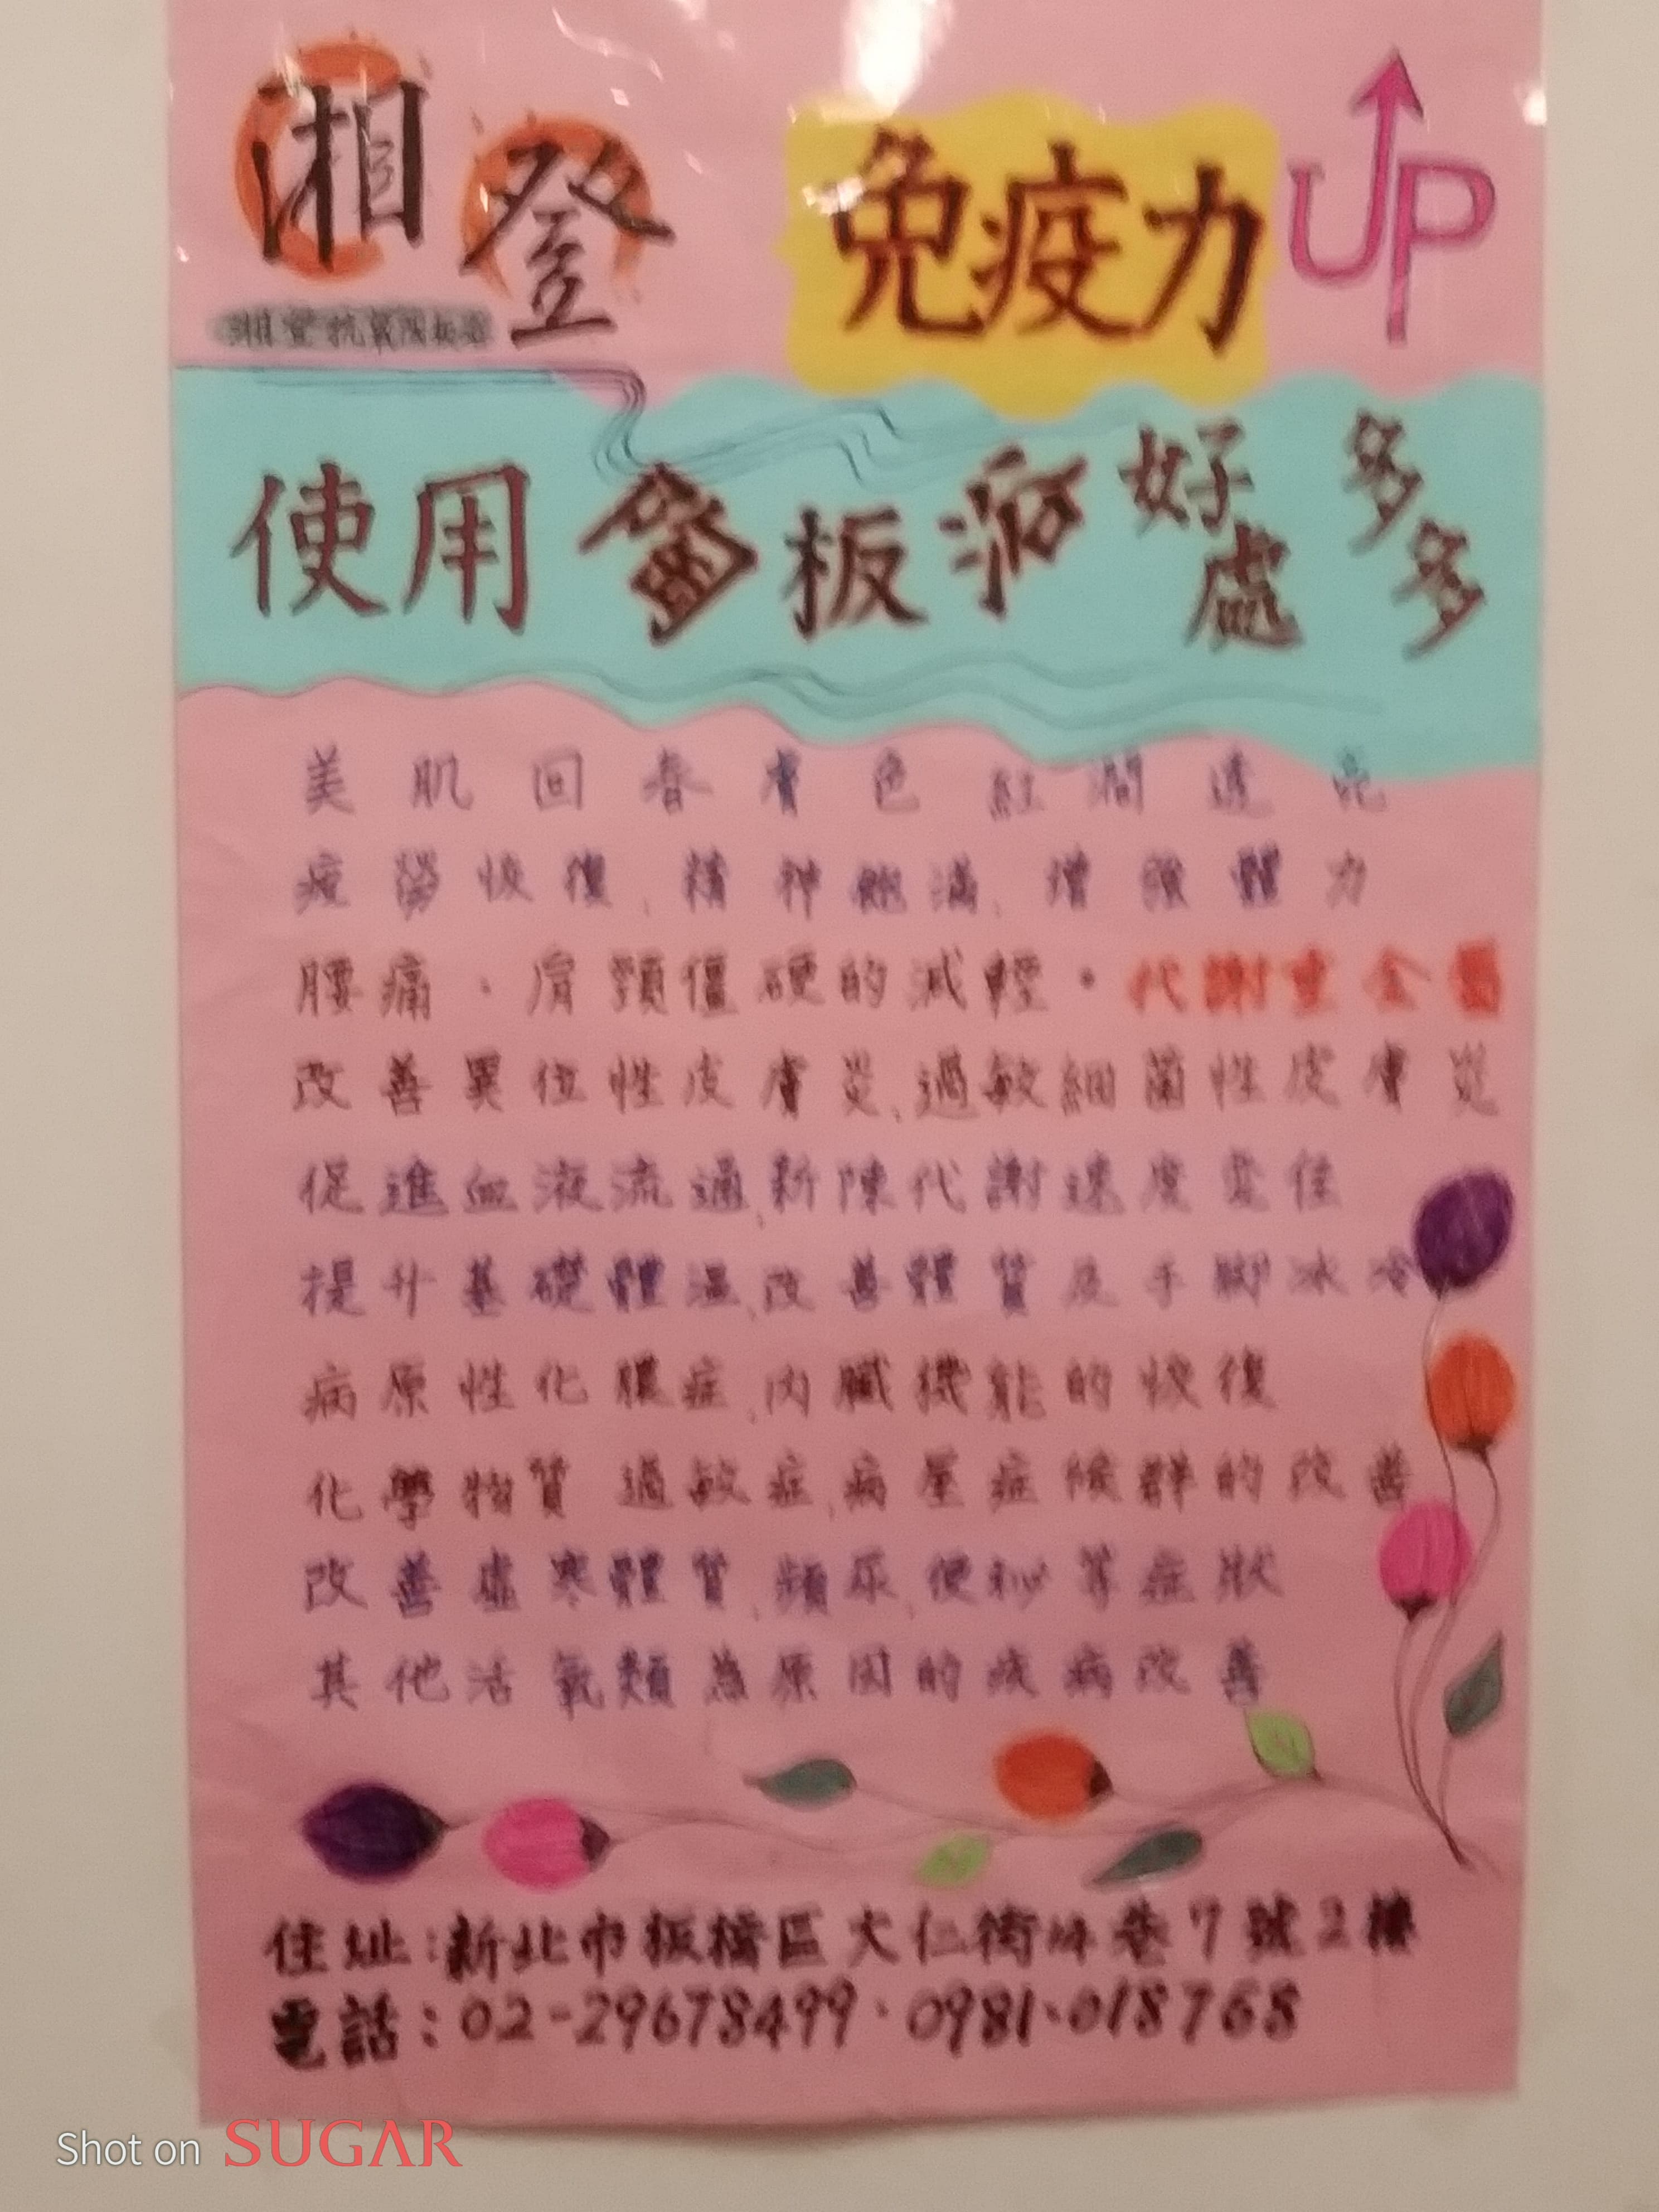 湘登
免疫力UP
湘登抗氧陶板浴
使用陶板浴好處多多
美肌回春膚色紅潤透亮
疲勞恢復、精神飽滿、增強體力
腰痛、肩頸僵硬的減輕。代謝重金屬
改善異位性皮膚炎、過敏細菌性皮膚炎
促進血液流通、新陳代謝速度變佳
提升基礎體溫、改善體質及手腳冰冷
病原性化膿症、內臟機能的恢復
化學物質過敏症、病屋症候群的改善
改善虛寒體質、頻尿、便秘等症狀
其他活氧類為原因的疾病改善
住址:新北市板橋區大仁街 巷7號2樓
電話:02-29678499、0981-018768
Shot on SUGAR